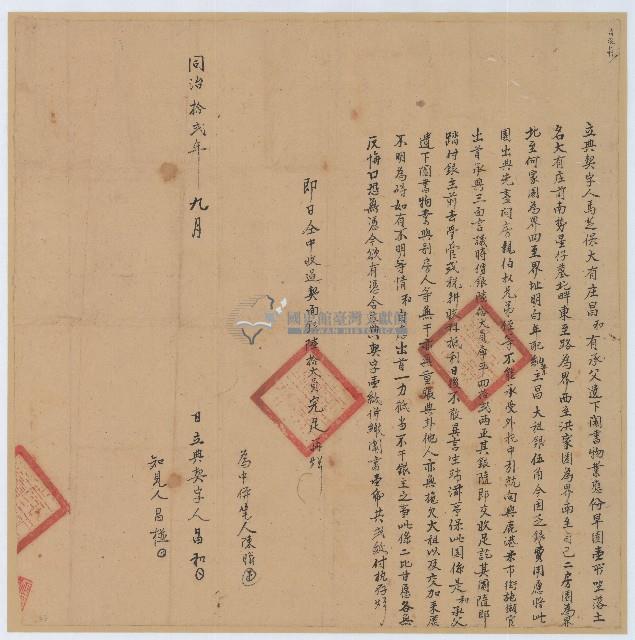 立典契字人馬芝保大有庄昌和有承父遺下鬮書物業應份旱園壹坵坐落土
名大有庄前南勢崙仔墓北畔東至路為界西至洪家園為界南至自己二房園為界
北至何家園為界四至界址明白年配納業主昌大租銀伍角今因乏銀費用愿將此
園出典先盡問房親伯叔兄弟侄等不能承受外托中引就向與鹿港米市街施擷官
出首承典三面言議時價銀陸拾大員庫平四拾貳兩正其銀隨即交收足訖其園隨即
踏付銀主前去掌管或稅耕收租抵利日後不敢異言生端滋事保此園係是和承父
遺下鬮書物業與別房人等無干亦無重張典挂他人亦無拖欠大租以及交加來歷
不明為碍如有不明等情和自應出首一力抵當不干銀主之事此係二比甘愿各無
反悔口恐無憑今欲有憑合立典契字壹紙併繳鬮書壹紙共貳紙付執存炤
即日仝中收過契面銀陸拾大員完足再炤
為中保筆人陳
日立典契字人昌和
知見人昌
同治拾貳年 九月
國史館臺灣文獻館
TAIWAN HISTORICA